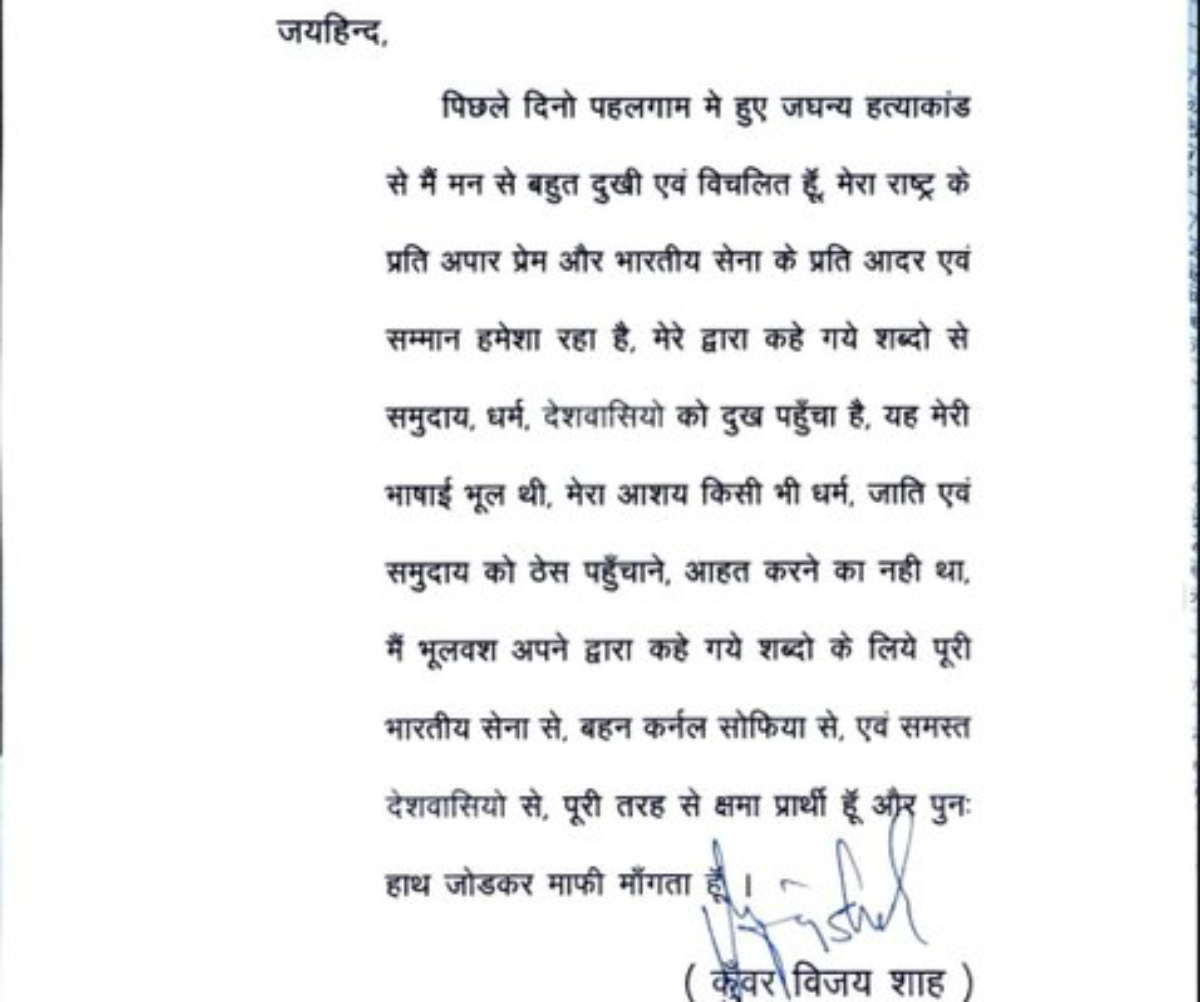 जयहिन्द,
पिछले दिनो पहलगाम मे हुए जघन्य हत्याकांड
से मैं मन से बहुत दुखी एवं विचलित हूँ, मेरा राष्ट्र के
प्रति अपार प्रेम और भारतीय सेना के प्रति आदर एवं
सम्मान हमेशा रहा है, मेरे द्वारा कहे गये शब्दो से
समुदाय, धर्म, देशवासियो को दुख पहुँचा है, यह मेरी
भाषाई भूल थी, मेरा आशय किसी भी धर्म, जाति एवं
समुदाय को ठेस पहुँचाने, आहत करने का नही था,
मैं भूलवश अपने द्वारा कहे गये शब्दो के लिये पूरी
भारतीय सेना से, बहन कर्नल सोफिया से, एवं समस्त
देशवासियो से, पूरी तरह से क्षमा प्रार्थी हूँ और पुनः
हाथ जोडकर माफी माँगता हूँ ।
( कुँवर विजय शाह )